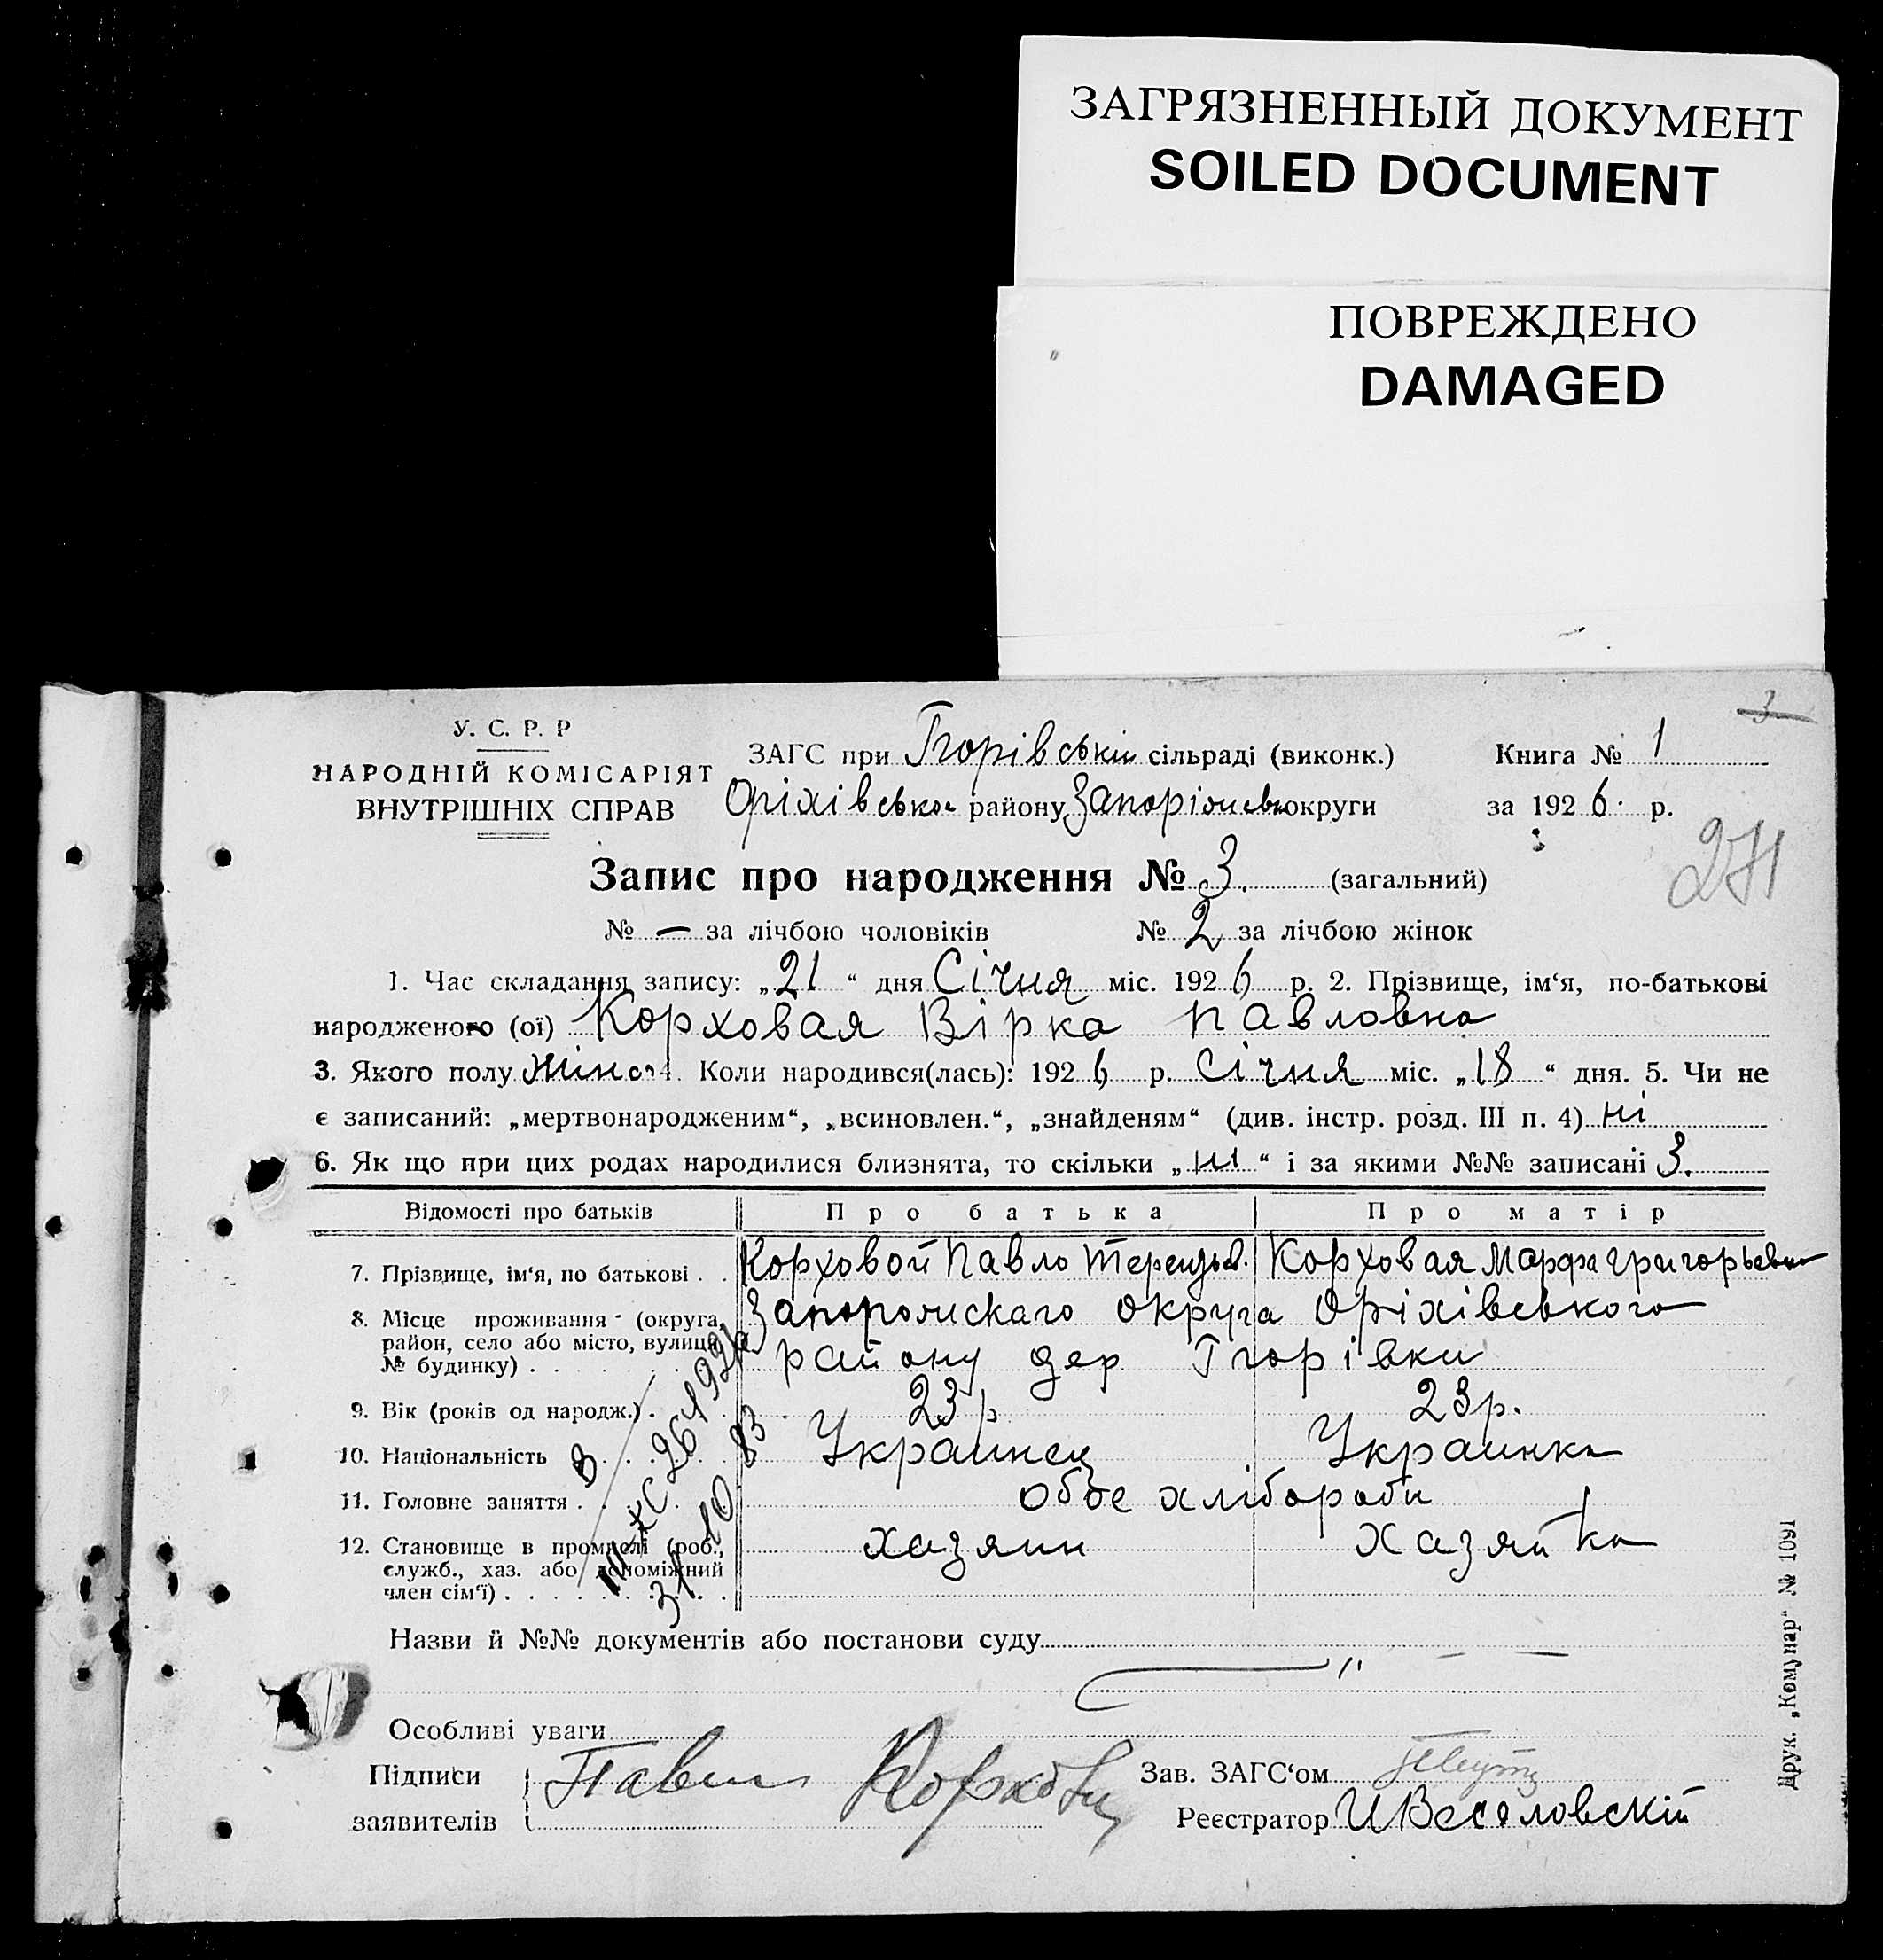 ЗАГРЯЗНЕННЫЙ ДОКУМЕНТ
SOILED DOCUMENT
ПОВРЕЖДЕНО
DAMAGED
3
У. С. Р. Р
НАРОДНІЙ КОМІСАРІЯТ
ВНУТРІШНІХ СПРАВ
ЗАГС при Ігорівській сільраді (виконк.) Книга № 1
Оріхівськог району Запоріжськ округи за 1926 р.
271
Запис про народження № 3. (загальний)
№ — за лічбою чоловіків № 2 за лічбою жінок
1. Час складання запису: „21“ дня Січня міс. 1926 р. 2. Прізвище, ім‘я, по-батькові
народженого (ої) Корховая Вірка Павловна
3. Якого полу жіноч 4. Коли народився(лась): 1926 р. Січня міс. „18“ дня. 5. Чи не
є записаний: „мертвонародженим“, „всиновлен.“, „знайденям“ (див. інстр. розд. III п. 4) ні
6. Як що при цих родах народилися близнята, то скільки „ні“ і за якими №№ записані 3.
Відомості про батьків Про батька Про матір
7. Прізвище, ім‘я, по батькові . . Корховой Павло Терентьев. Корховая Марфа Григорьевн
8. Місце проживання (округа, район, село або місто, вулиця, № будинку) . .
Запорожскаго округа Оріхівського
району дер Ігорівки
9. Вік (років од народж.) . 23 р. 23 р.
10. Національність Украинец Украинка
11. Головне заняття . . обое хлібороби
12. Становище в промислі (роб., служб., хаз. або допоміжний член сім‘ї) . . хазяин хазяйка
Назви й №№ документів або постанови суду
Особливі уваги
Підписи заявителів Павел Корховий
Зав. ЗАГС‘ом
Реєстратор И Веселовскій
Друк. „Комунар“ № 1091